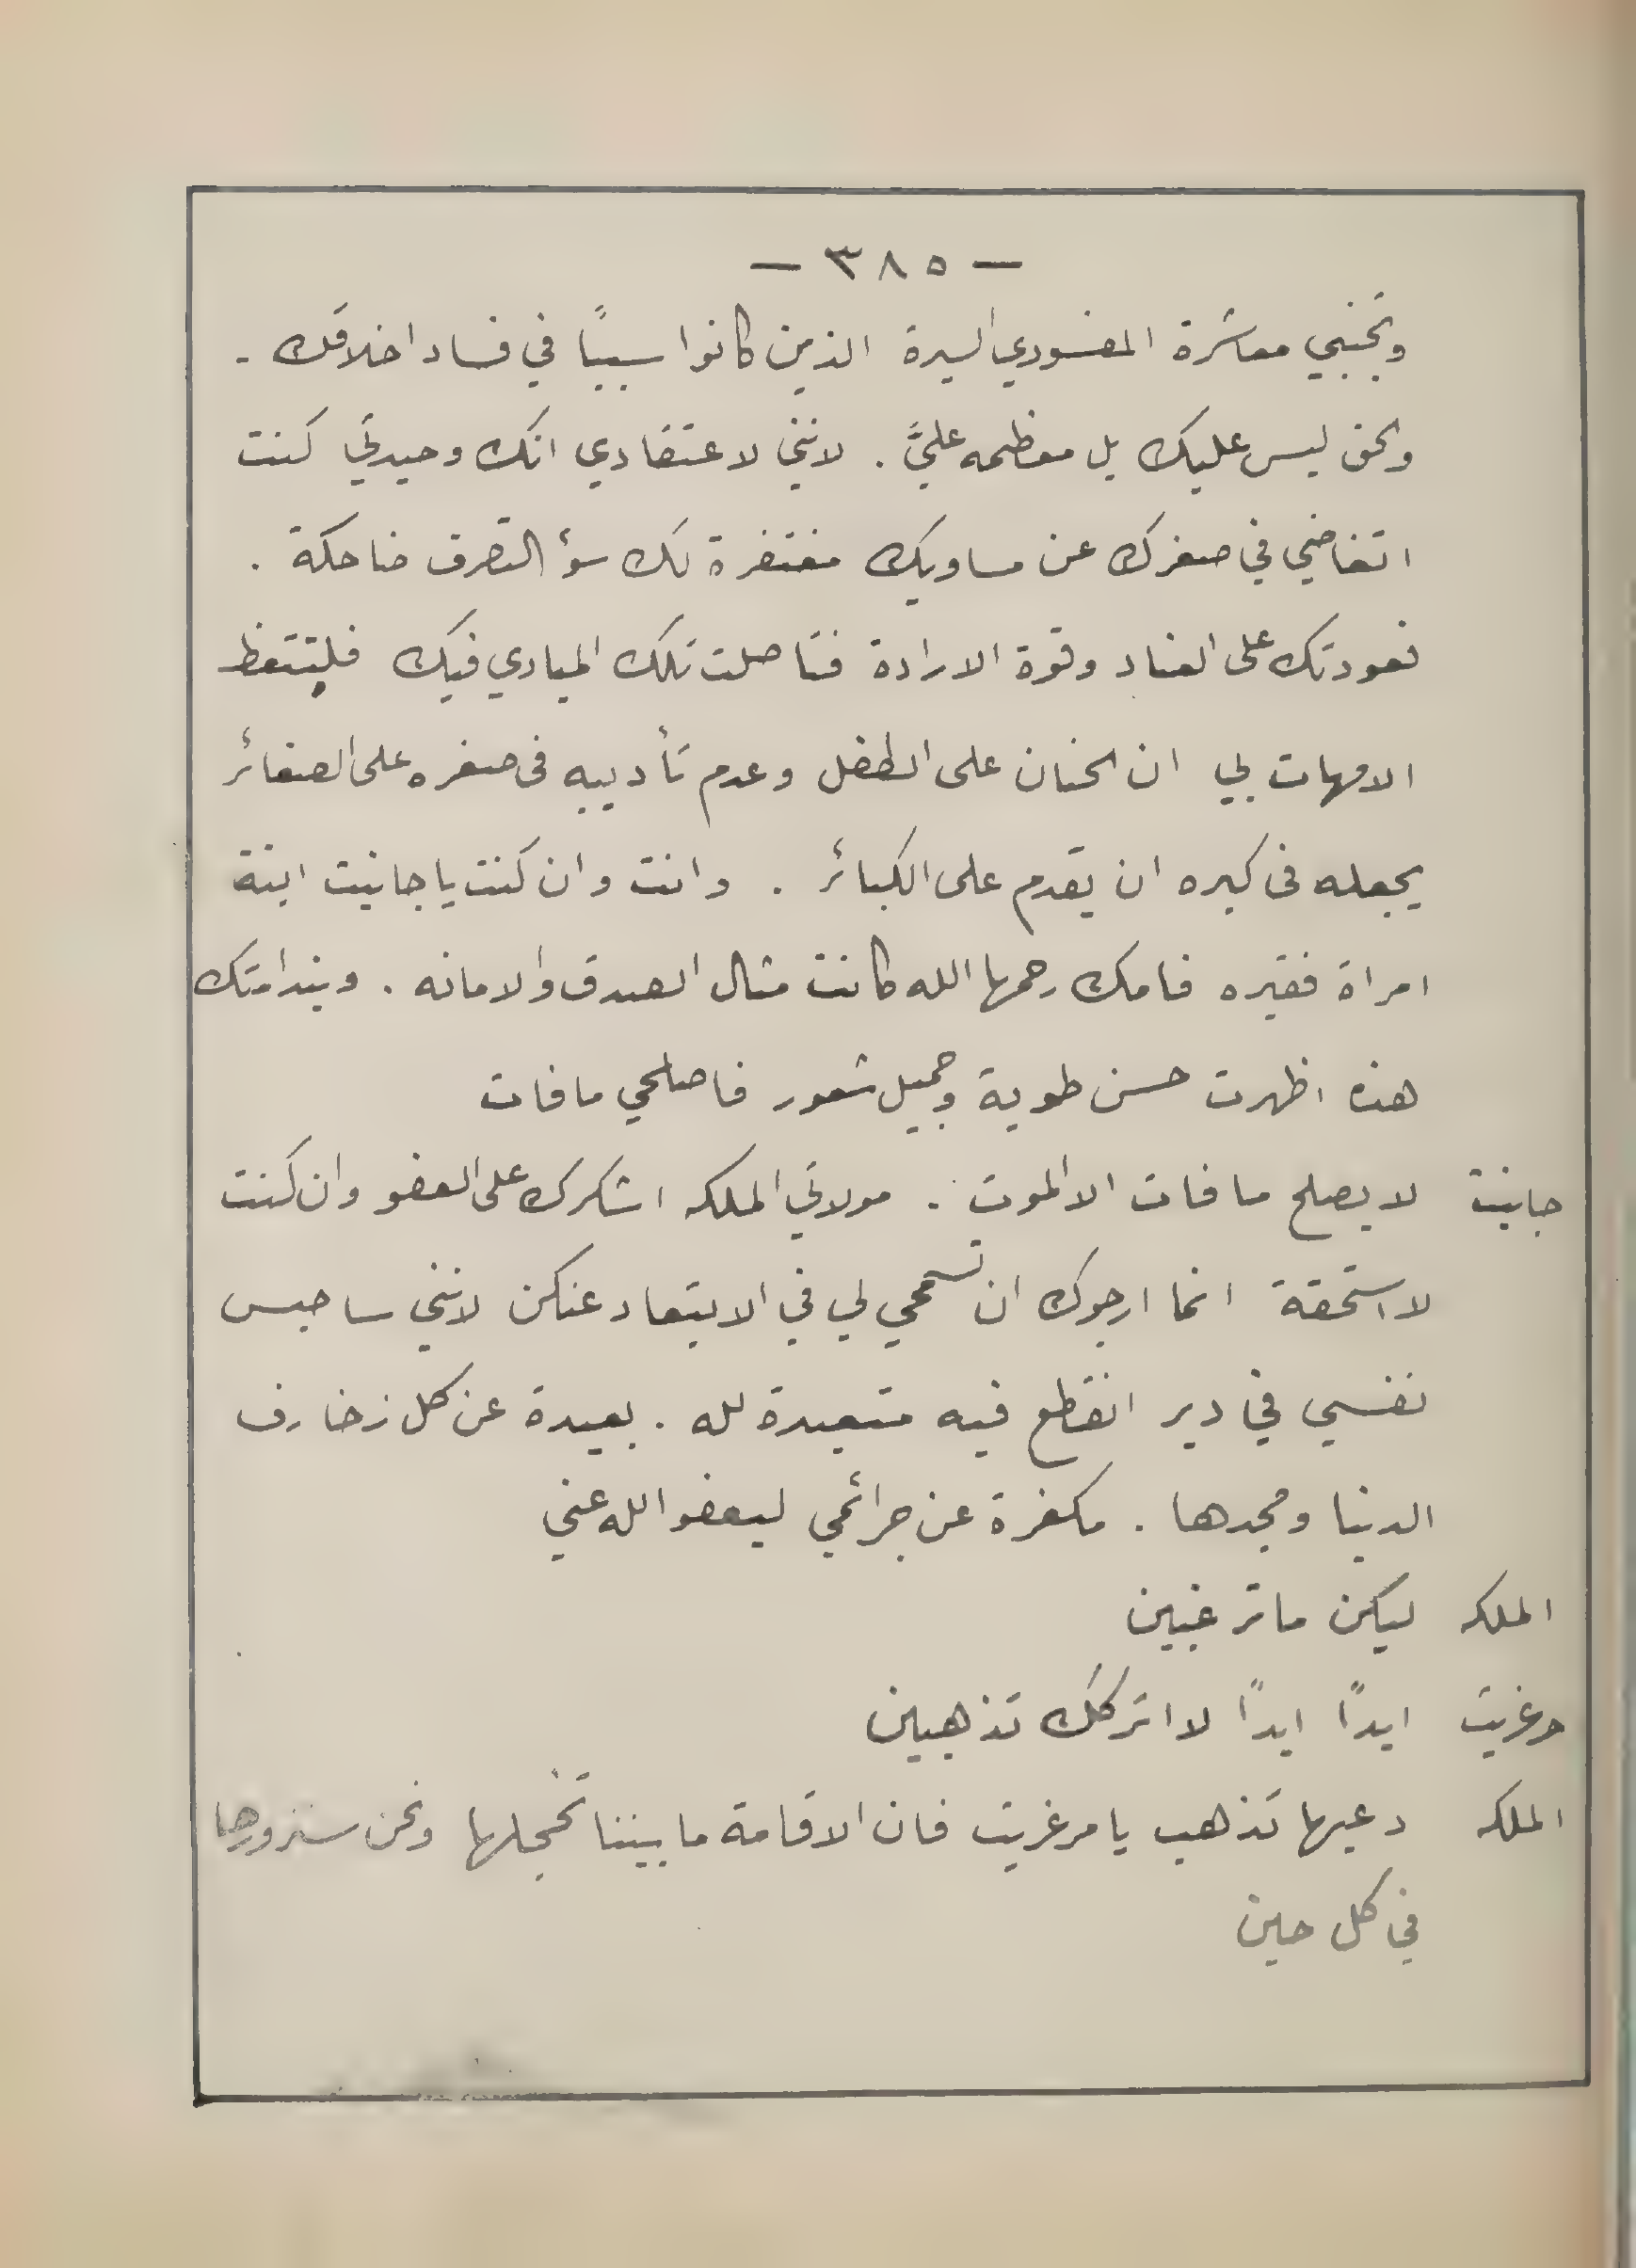 — ٣٨٥ —
وتجنبي معاشرة المفسودي السيرة الذين كانوا سببًا في فساد اخلاقك .
والحق ليس عليك بل معظمه عليَّ . لانني لاعتقادي انك وحيدتي كنت
اتغاضي في صغرك عن مساويك مغتفرة لك سوٴ التصرف ضاحكة .
فعودتك على العناد وقوة الارادة فتاصلت تلك المبادي فيك فليتتعظ
الامهات بي ان الحنان على الطفل وعدم تأديبه في صغره على الصغائر
يجعله في كبره ان يقدم على الكبائر . وانت وان كنت يا جانيت ابنة
امراة فقيره فامك رحمها الله كانت مثال الصدق والامانه . وبندامتك
هذه اظهرت حسن طوية وجميل شعور فاصلحي ما فات
جانيت لا يصلح ما فات الا الموت . مولاتي الملكه اشكرك على العفو وان كنت
لا استحقة انما ارجوك ان تسمحي لي في الابتعاد عنكن لانني ساحبس
نفسي في دير انقطع فيه متعبدة لله . بعيدة عن كل زخارف
الدنيا ومجدها . مكفرة عن جرائمي ليعفو الله عني
الملكه ليكن ما ترغبين
مرغريت ابدًا ابدًا لا اتركك تذهبين
الملكه دعيها تذهب يا مرغريت فان الاقامة ما بيننا تخجلها ونحن سنزورها
في كل حين